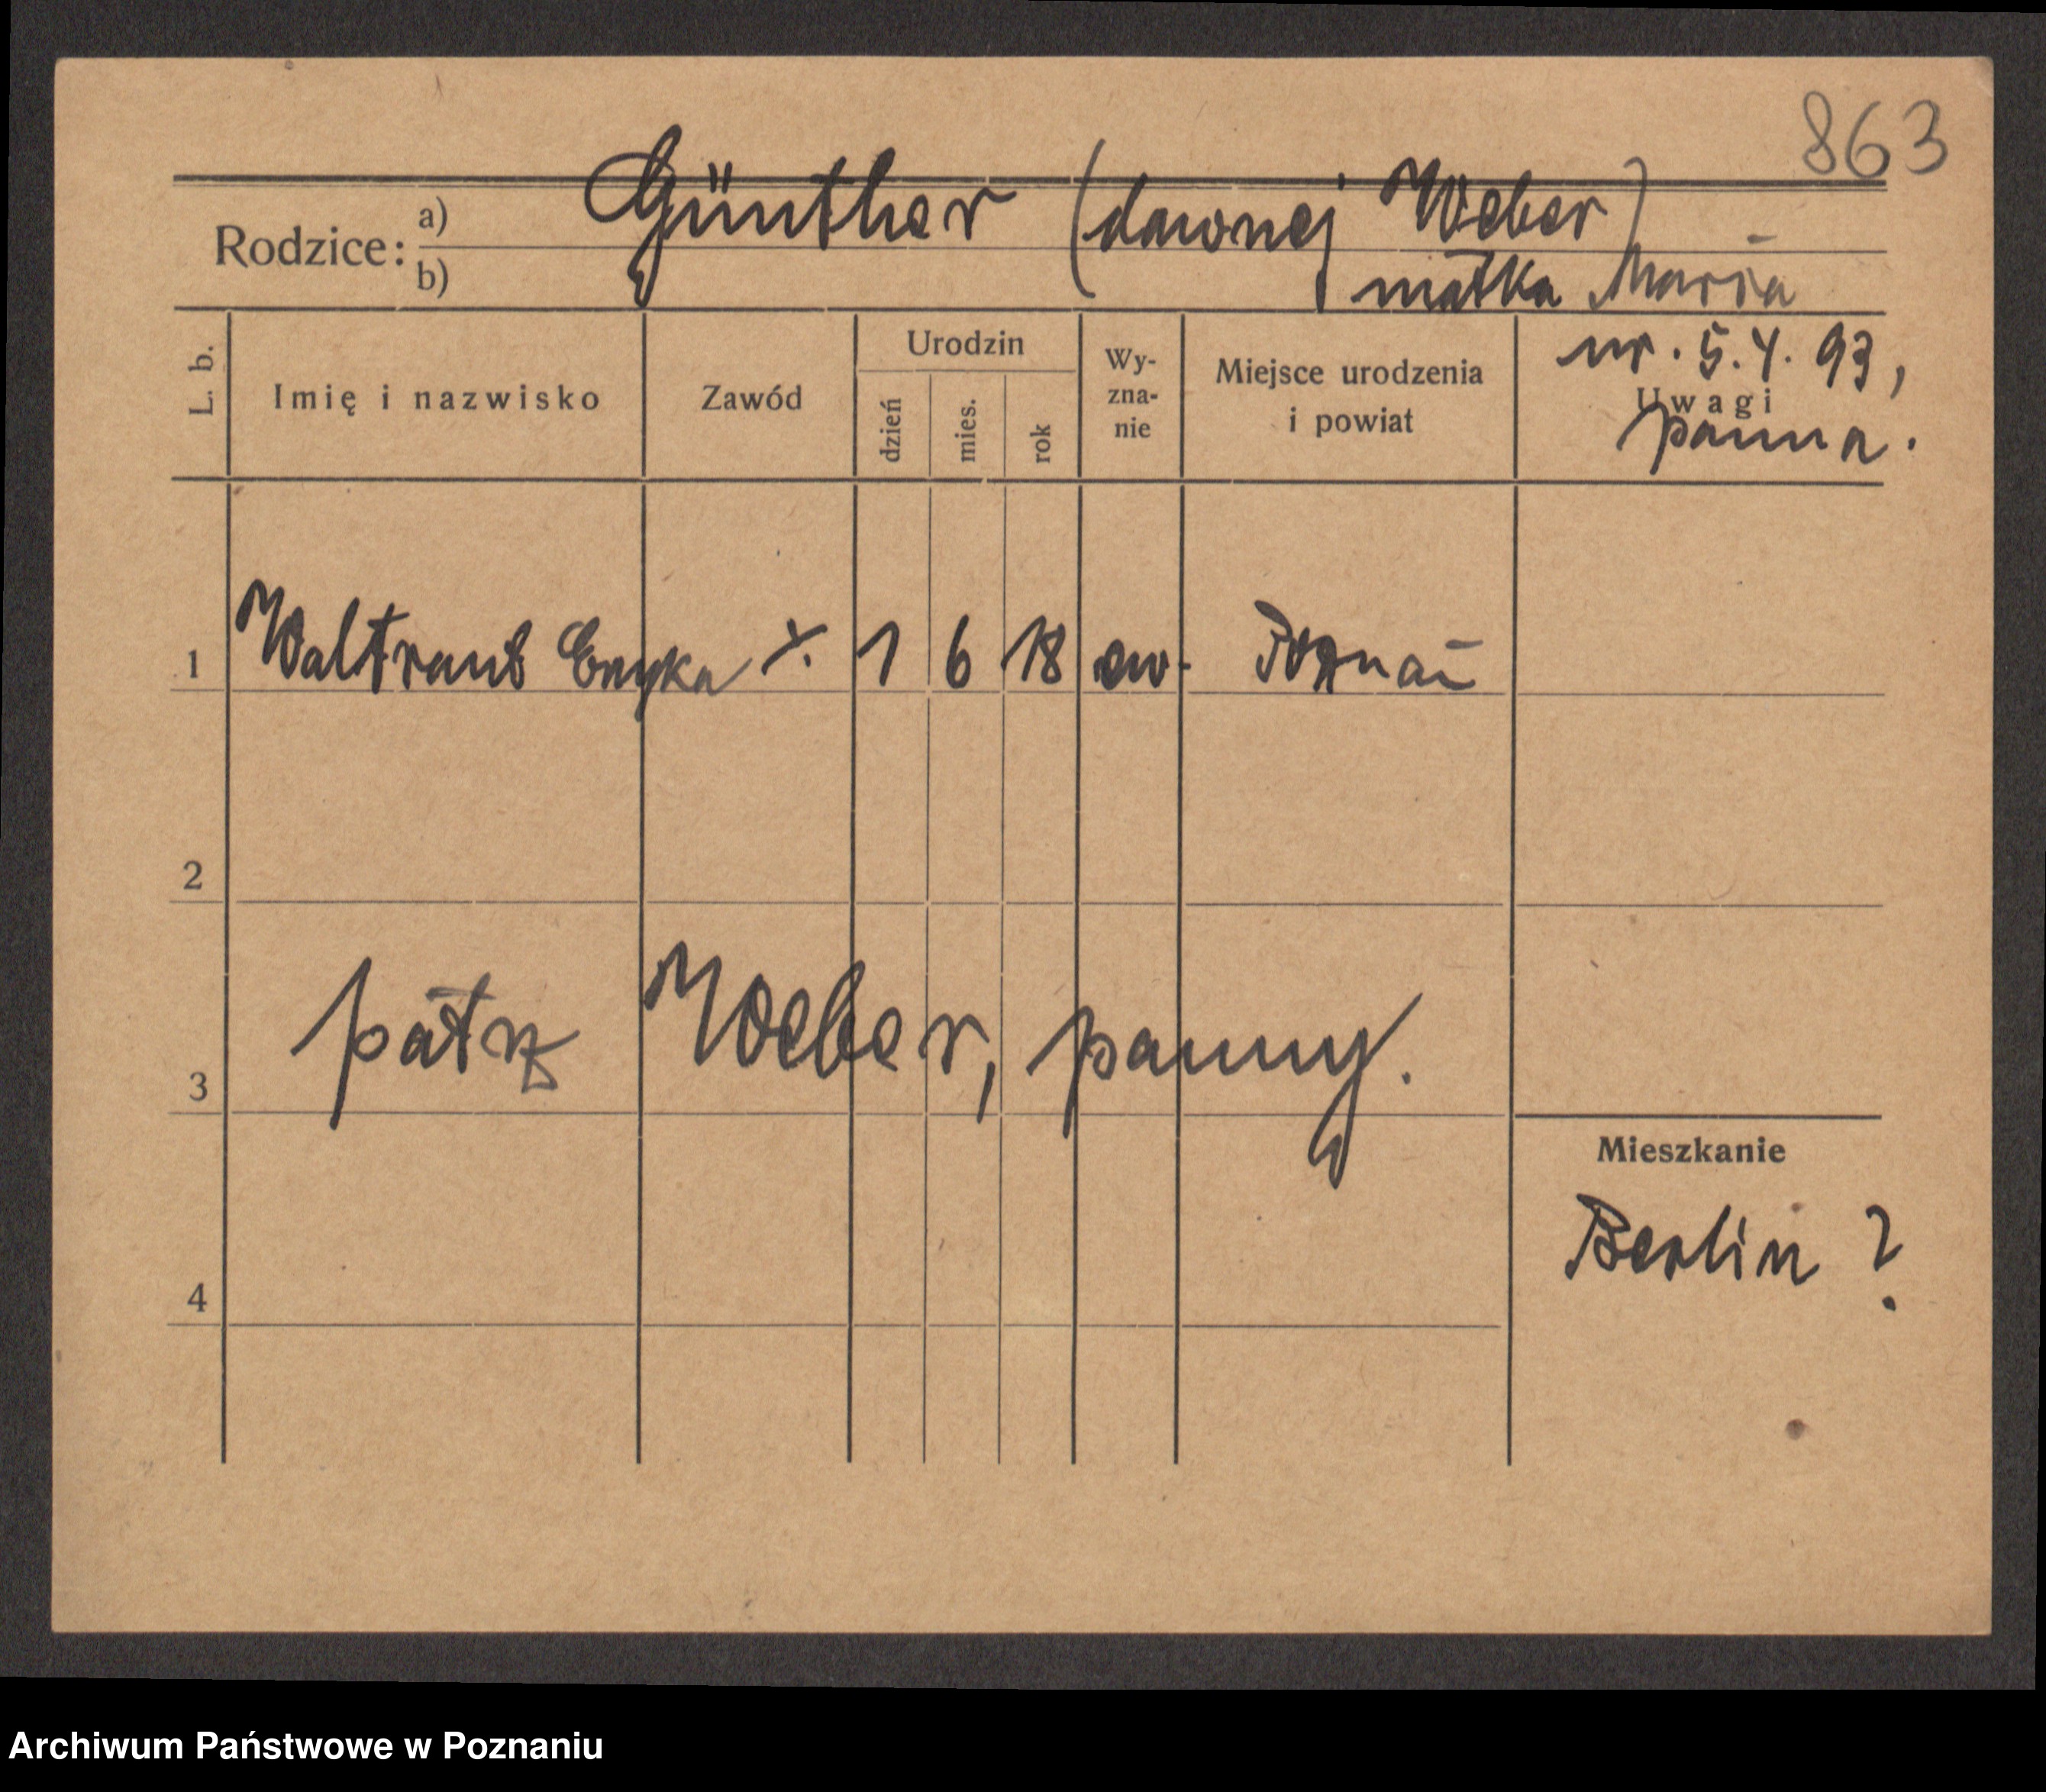 863
Rodzice: a) Günther (dawnej Weber)
b) matka Maria
ur. 5.4.93,
panna.
L. b.
Imię i nazwisko
Zawód
Urodzin
dzień
mies.
rok
Wy-
zna-
nie
Miejsce urodzenia
i powiat
Uwagi
1 Waltraut Eryka 1 6 18 ew. Poznań
2
3 patrz Weber, panny.
4
Mieszkanie
Berlin ?
Archiwum Państwowe w Poznaniu